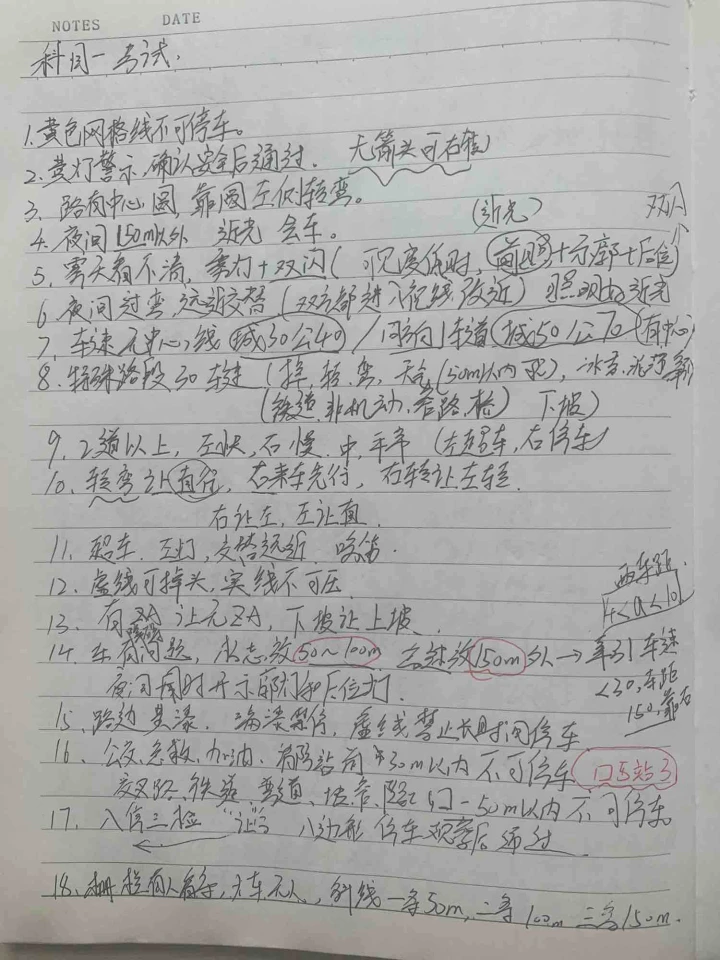 NOTES DATE
科目一考试.
1.黄色网格线不可停车。
2.黄灯警示,确认安全后通过. 无箭头可右转
3. 路有中心圈,靠圈左侧转弯。
(近光) 双闪
4.夜间150m以外 近光 会车。
5. 雾天看不清,雾灯+双闪( 可见度低时,前照+示廓+后位)
6. 夜间过弯,远近交替 (双方都进入视线改近) 照明好近光
7. 车速无中心线 城30公40 / 同向1车道 城50公70 (有中心)
8. 特殊路段30车速 (掉,转,弯,天气(50m以内可见),冰雪,泥泞,窄
(铁道,非机动,窄路,桥) 下坡)
9. 2道以上,左快,右慢.中, (左超车,右停车)
10. 转弯让直行,右来车先行,右转让左转.
右让左,左让直.
11. 超车.左灯,交替远近 鸣笛.
12. 虚线可掉头,实线不可压.
两车距
4<a<10
13. 有ZA让无ZA,下坡让上坡.
14. 车有问题,标志放50~100m 高速放150m外→牵引车速
<20,车距
夜间同时开示廓灯和后位灯.
150,靠右
15. 路边是漆. 满漆禁停,虚线禁止长时间停车
16. 公交,急救,加油,消防站前 30m以内 不可停车 口5站3
交叉路、铁道、弯道、 路口-50m以内不可停车
17. 入停三检 "让" 八边形 停车观察后通过
18. 栅栏有人看守,火车无人,斜线一条50m,二条100m 三条150m.